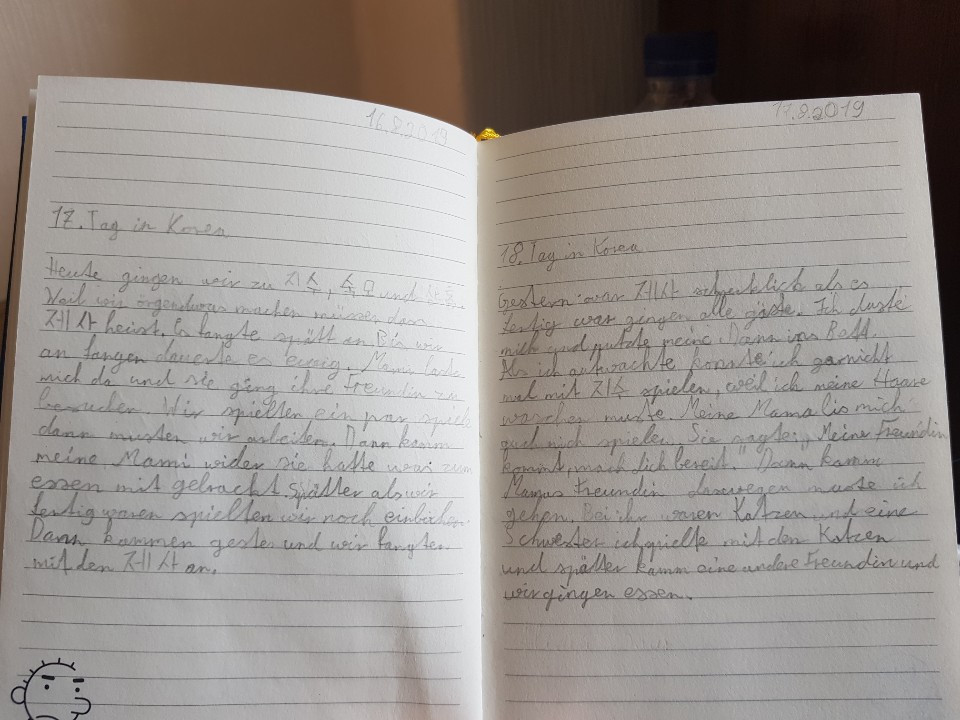 16.8.2019
17. Tag in Korea
Heute gingen wir zu 지수, 숙모 und
Weil wir irgendwas machen müssen dass
제사 heist. Es fangte spätt an Bis wir
an fangen dauerte es ewig. Mami
mich da und sie ging ihre Freundin zu
besuchen. Wir spielten ein par spiele
dann musten wir arbeiten. Dann kamm
meine Mami wider sie hatte was zum
essen mit gebracht. Spätter als wir
fertig waren spielten wir noch
Dann kammen geste und wir fangten
mit den 제사 an.
17.8.2019
18. Tag in Korea
Gestern war 제사 schrecklich als es
fertig war gingen alle gäste. Ich duste
mich und putzte meine Dann ins Bett
Als ich aufwachte konnte ich garnicht
mal mit 지수 spielen, weil ich meine Haare
waschen muste. Meine Mama lis mich
auch nich spielen. Sie sagte: „Meine Freundin
kommt, mach dich bereit." Dann kamm
Mamas Freundin deswegen muste ich
gehen. Bei ihr waren Katzen und eine
Schwester ich spielte mit den Katzen
und spätter kamm eine andere Freundin und
wir gingen essen.